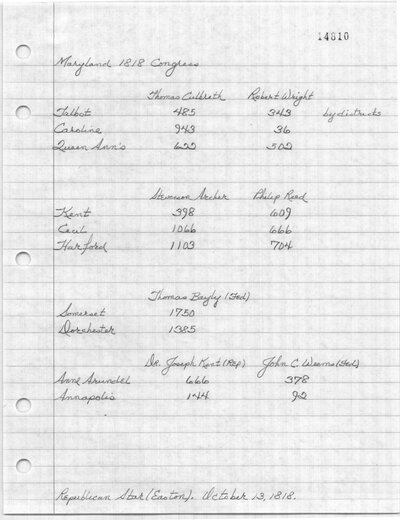 14810
Maryland 1818 Congress
Thomas Culbreth Robert Wright
Talbot 485 343 by districts
Caroline 943 36
Queen Ann's 622 502
Stevenson Archer Philip Reed
Kent 398 609
Cecil 1066 666
Harford 1103 704
Thomas Bayly (Fed)
Somerset 1750
Dorchester 1385
Dr. Joseph Kent (Rep) John C. Weems (Fed)
Anne Arundel 666 378
Annapolis 144 92
Republican Star (Easton). October 13, 1818.